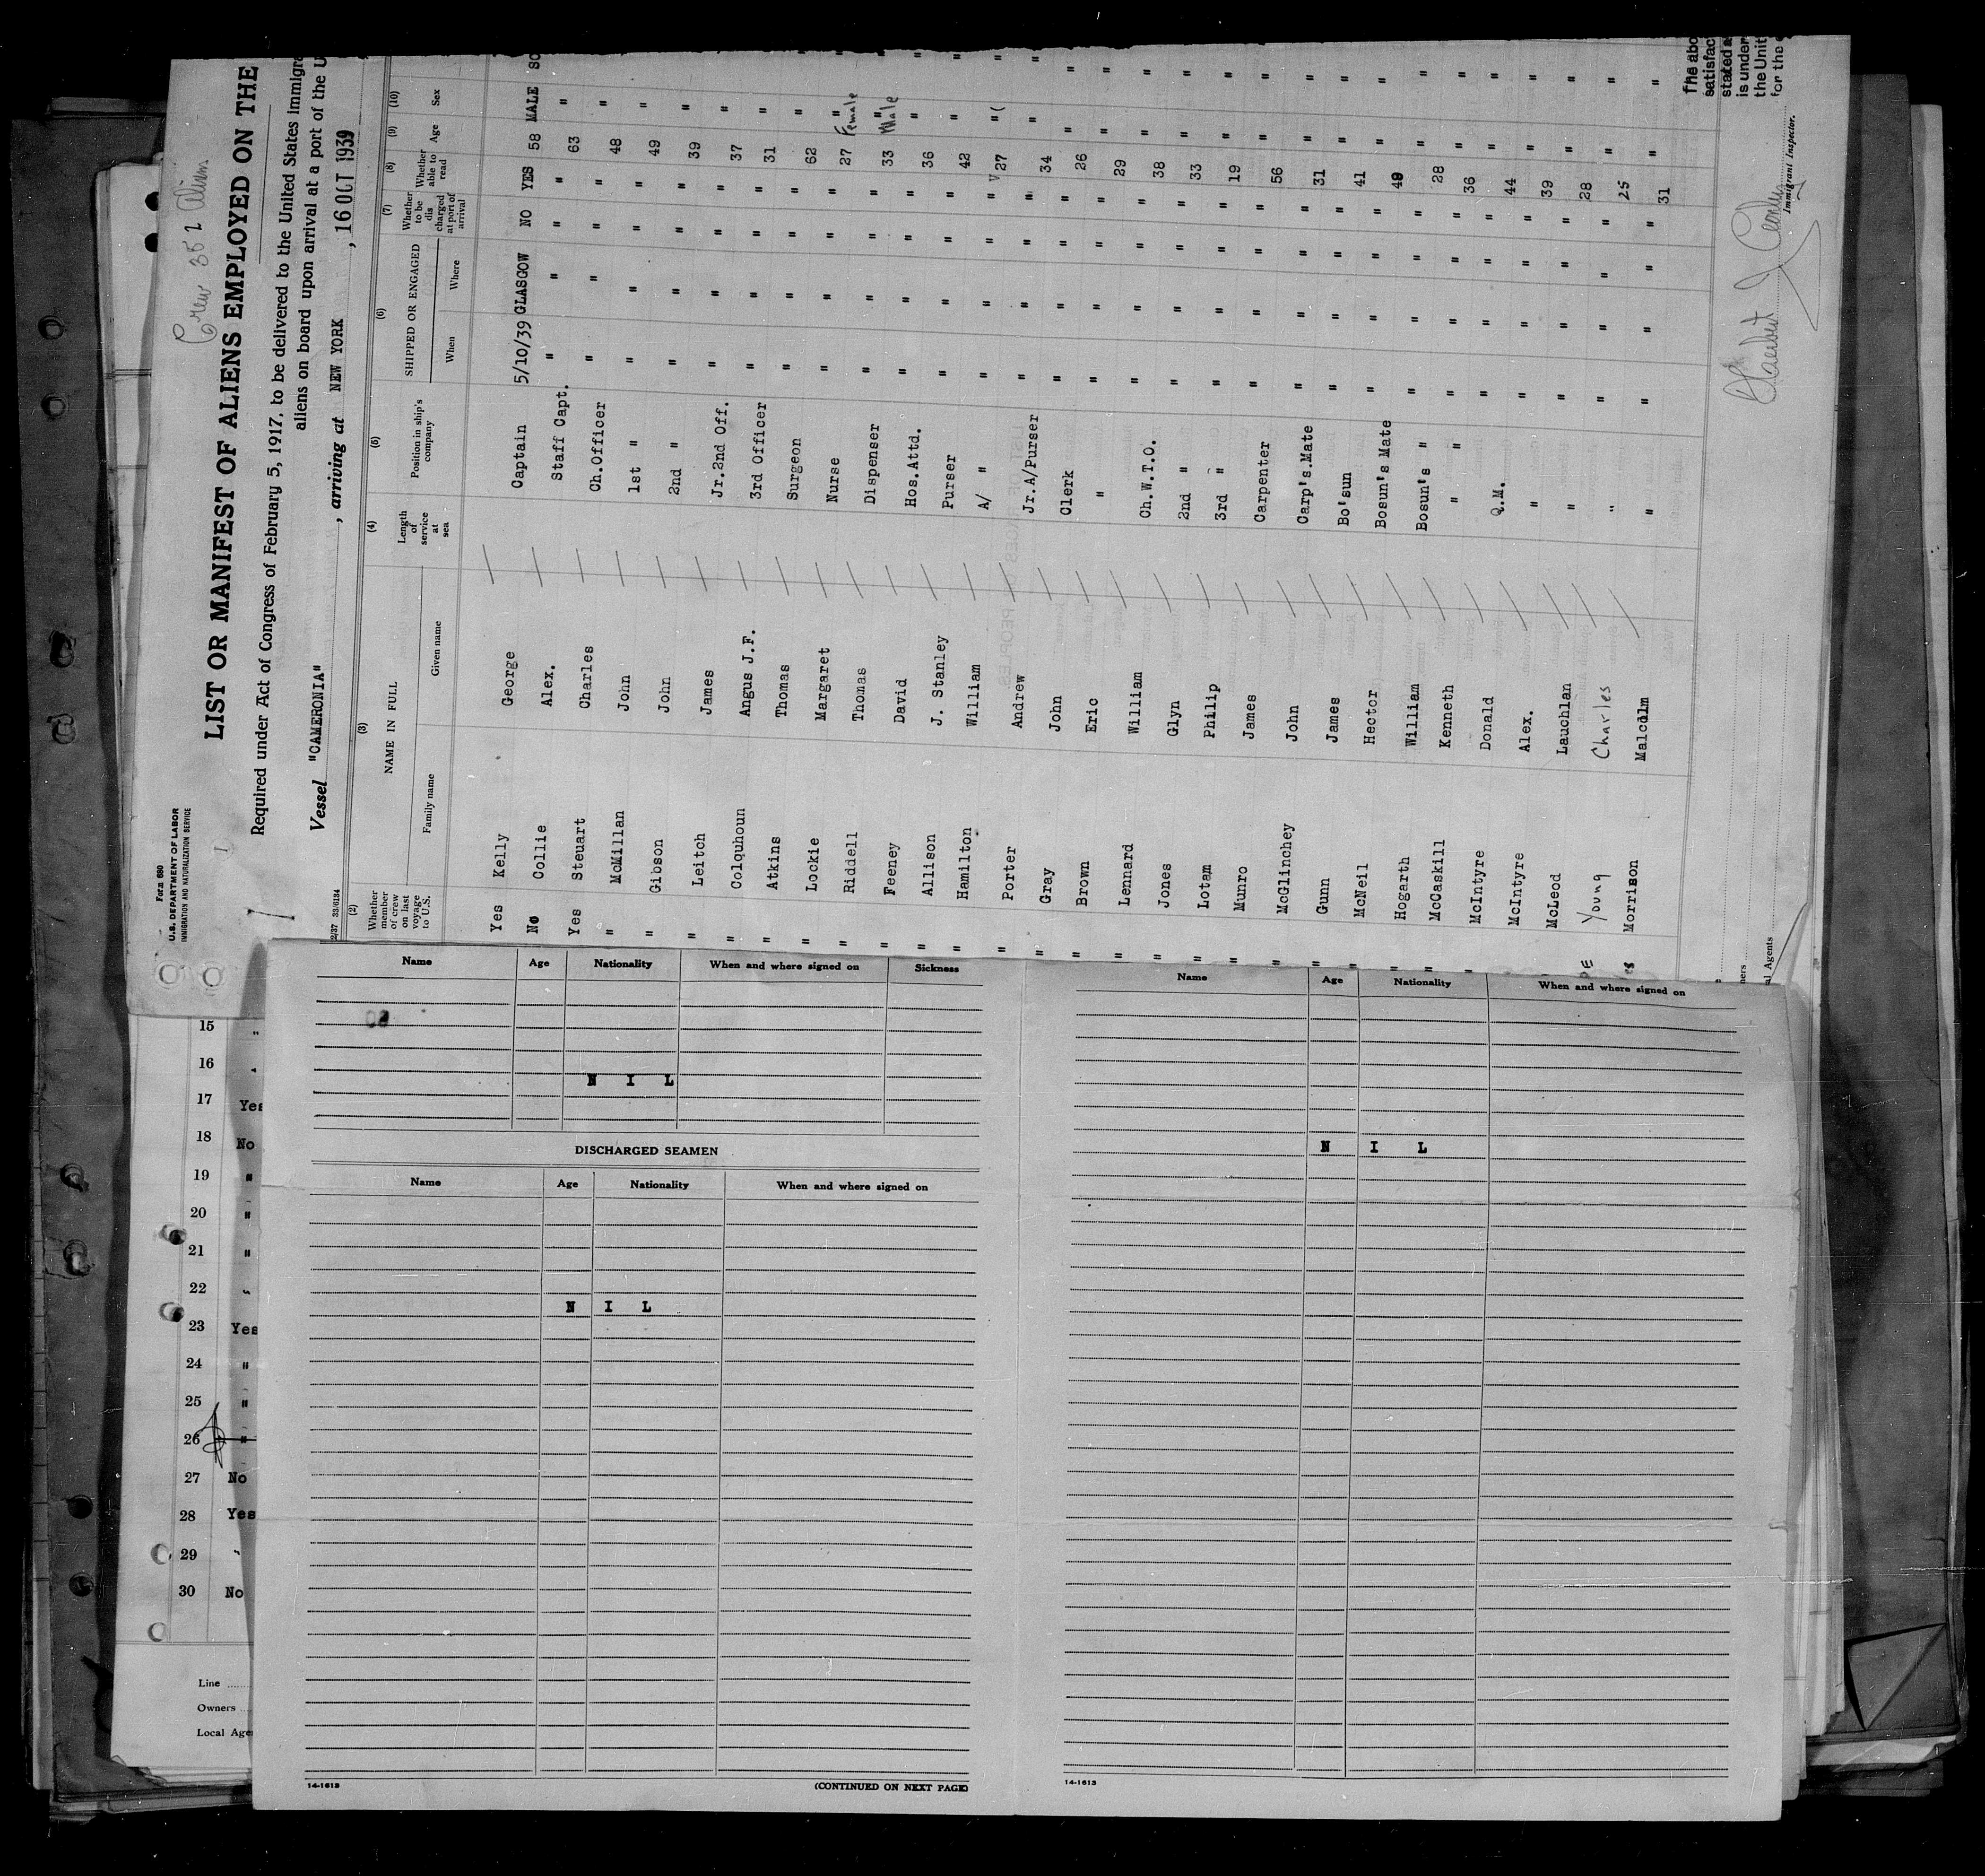 Form 680
U.S. DEPARTMENT OF LABOR
IMMIGRATION AND NATURALIZATION SERVICE
Crew 352
LIST OR MANIFEST OF ALIENS EMPLOYED ON THE
Required under Act of Congress of February 5, 1917, to be delivered to the United States immigra
aliens on board upon arrival at a port of the U
Vessel "CAMERONIA" , arriving at NEW YORK , 16 OCT 1939
(2) (3) (4) (5) (6) (7) (8) (9) (10)
Whether member of crew on last voyage to U.S. NAME IN FULL Length of service at sea Position in ship's company SHIPPED OR ENGAGED Whether to be discharged at port of arrival Whether able to read Age Sex
Family name Given name When Where
Yes Kelly George Captain 5/10/39 GLASGOW NO YES 58 MALE SC
No Collie Alex. Staff Capt. " " " " 63 " "
Yes Steuart Charles Ch.Officer " " " " 48 " "
" McMillan John 1st " " " " " 49 " "
" Gibson John 2nd " " " " " 39 " "
" Leitch James Jr.2nd Off. " " " " 37 " "
" Colquhoun Angus J.F. 3rd Officer " " " " 31 " "
" Atkins Thomas Surgeon " " " " 62 " "
" Lockie Margaret Nurse " " " " 27 Female "
" Riddell Thomas Dispenser " " " " 33 Male "
" Feeney David Hos.Attd. " " " " 36 " "
" Allison J. Stanley Purser " " " " 42 " "
" Hamilton William A/ " " " " " 27 " "
" Porter Andrew Jr.A/Purser " " " " 34 " "
" Gray John Clerk " " " " 26 " "
" Brown Eric " " " " " 29 " "
" Lennard William Ch.W.T.O. " " " " 38 " "
" Jones Glyn 2nd " " " " " 33 " "
" Lotam Philip 3rd " " " " " 19 " "
" Munro James Carpenter " " " " 56 " "
" McGlinchey John Carp's.Mate " " " " 31 " "
" Gunn James Bo'sun " " " " 41 " "
" McNeil Hector Bosun's Mate " " " " 40 " "
" Hogarth William Bosun's " " " " " 28 " "
" McCaskill Kenneth " " " " " " 36 " "
" McIntyre Donald Q.M. " " " " 44 " "
McIntyre Alex. " " " " " 39 " "
McLeod Lauchlan " " " " " 28 " "
Young Charles " " " " " 25 " "
es Morrison Malcolm " " " " " 31 " "
The abo
satisfac
stated a
is under
the Unit
for the
Immigrant Inspector.
ners
al Agents
Name Age Nationality When and where signed on Sickness
N I L
DISCHARGED SEAMEN
Name Age Nationality When and where signed on
N I L
14-1613
(CONTINUED ON NEXT PAGE)
Name Age Nationality When and where signed on
N I L
14-1613
15 "
16 "
17 Yes
18 No
19 "
20 "
21 "
22 "
23 Yes
24 "
25 "
26 "
27 No
28 Yes
29 "
30 No
Line
Owners
Local Age